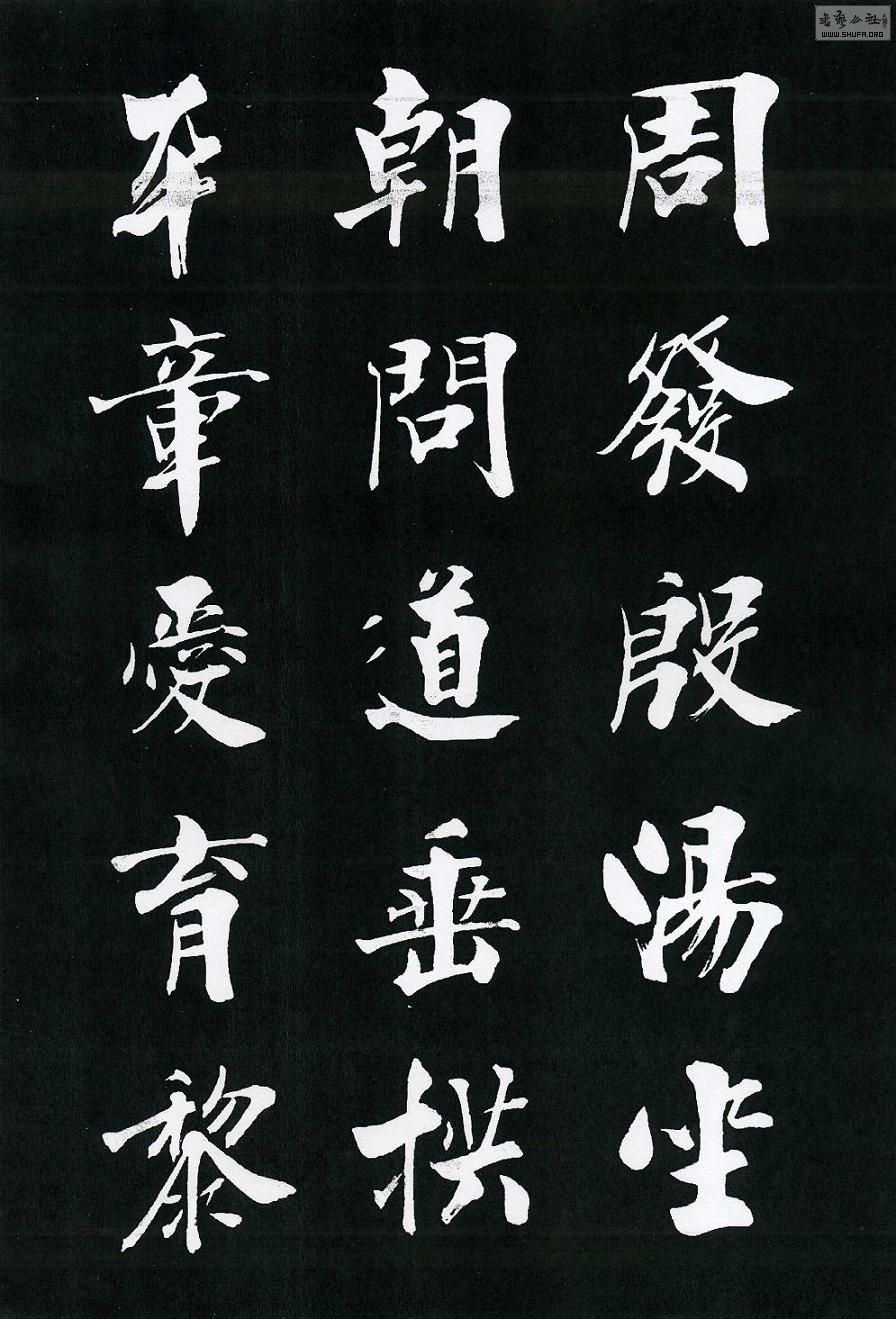 周發殷湯坐
朝問道垂拱
平章愛育黎
WWW.SHUFA.ORG